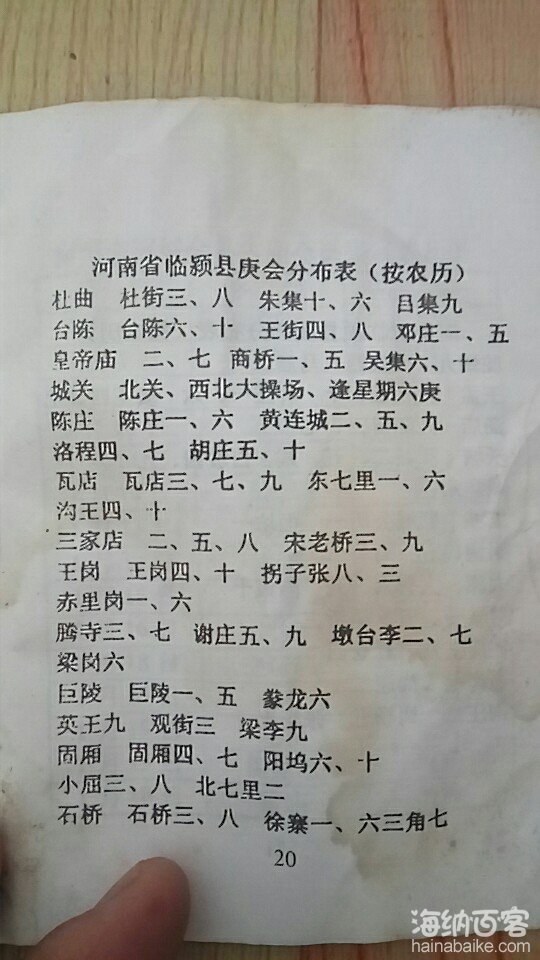 河南省临颍县庚会分布表（按农历）
杜曲 杜街三、八 朱集十、六 吕集九
台陈 台陈六、十 王街四、八 邓庄一、五
皇帝庙 二、七 商桥一、五 吴集六、十
城关 北关、西北大操场、逢星期六庚
陈庄 陈庄一、六 黄连城二、五、九
洛程四、七 胡庄五、十
瓦店 瓦店三、七、九 东七里一、六
沟王四、十
三家店 二、五、八 宋老桥三、九
王岗 王岗四、十 拐子张八、三
赤里岗一、六
腾寺三、七 谢庄五、九 墩台李二、七
梁岗六
巨陵 巨陵一、五 豢龙六
英王九 观街三 梁李九
固厢 固厢四、七 阳坞六、十
小屈三、八 北七里二
石桥 石桥三、八 徐寨一、六三角七
20
海纳百客
hainabaike.com